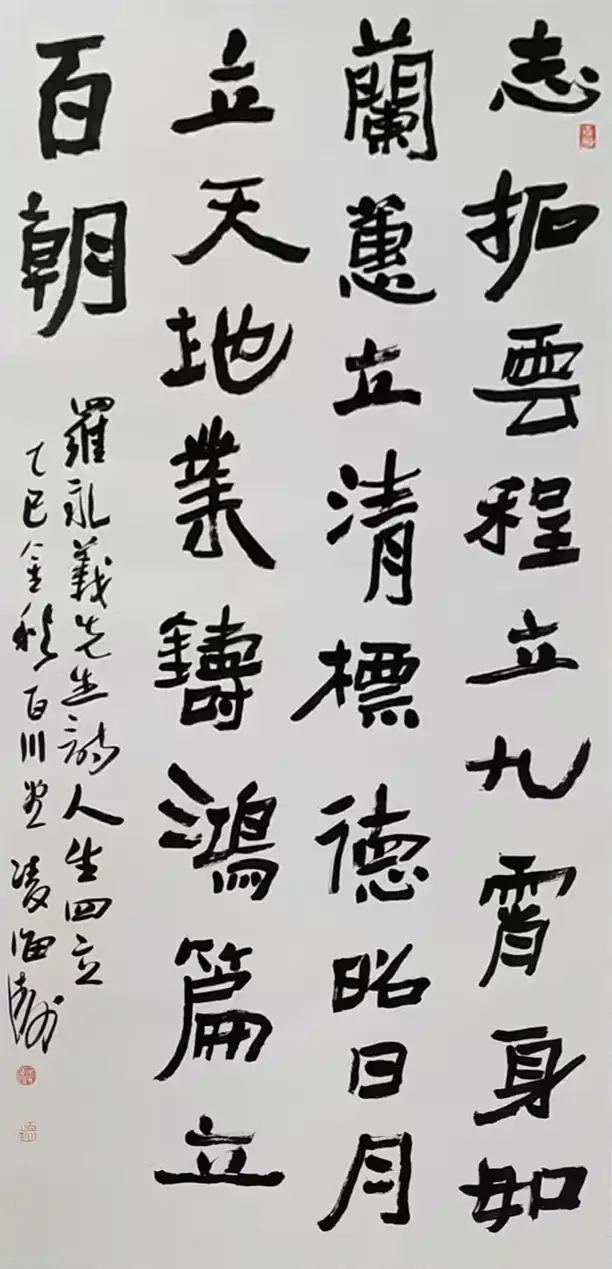 志拓雲程立九霄身如
蘭蕙立清標德昭日月
立天地業鑄鴻篇立
百朝
羅永義先生詩人生四立
乙巳金秋百川堂凌海濤